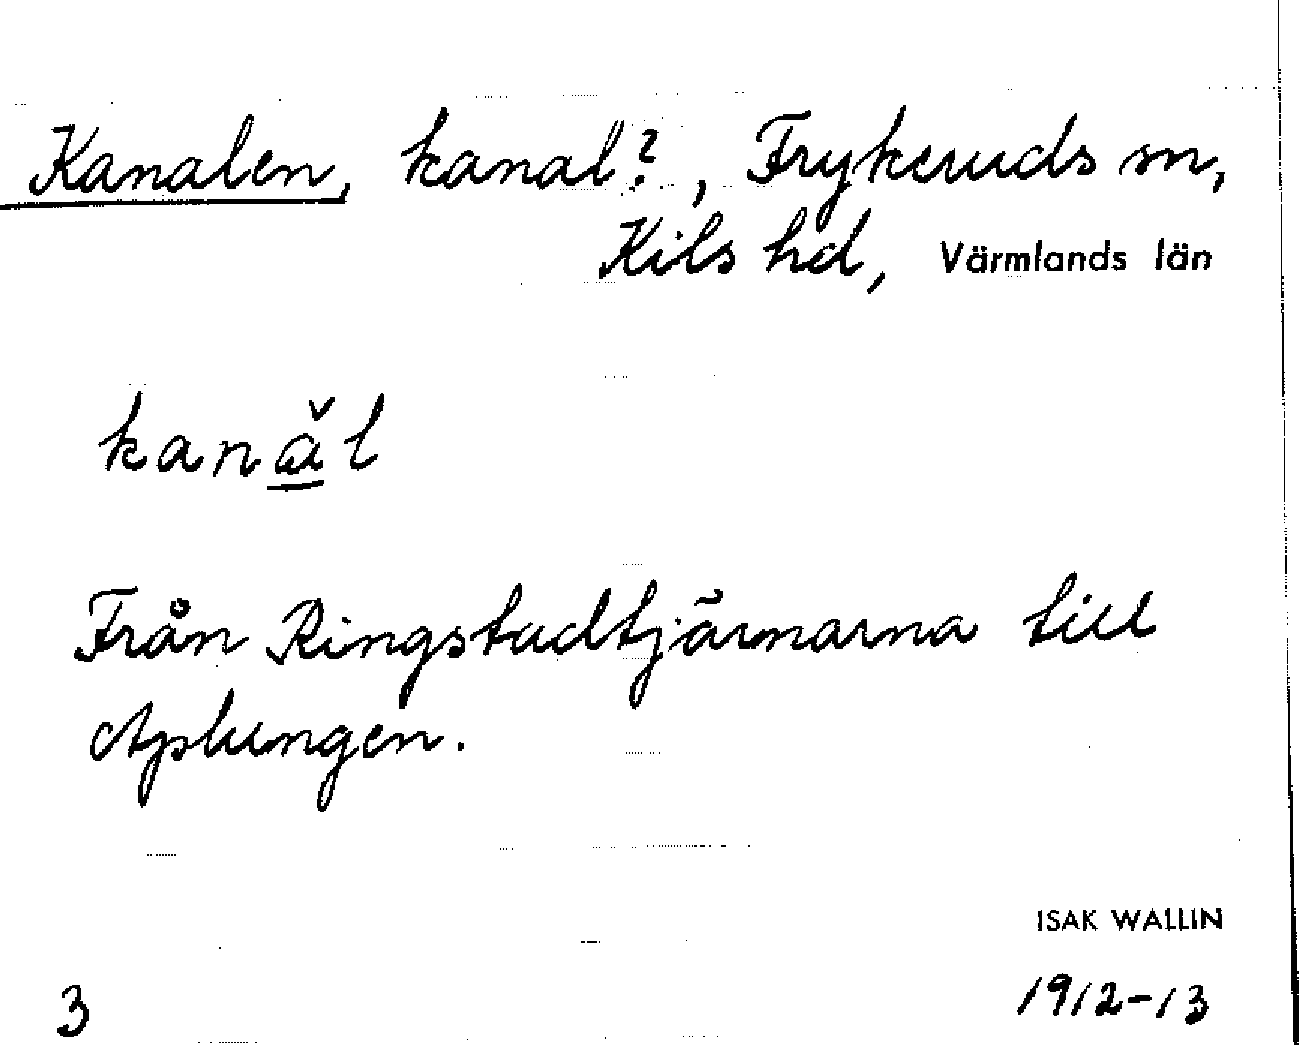 Kanalen, kanal?, Frykeruds sn,
Kils hd, Värmlands län
kanǎ̱l
Från Ringstadtjärnarna till
Aplungen.
ISAK WALLIN
3 1912-13